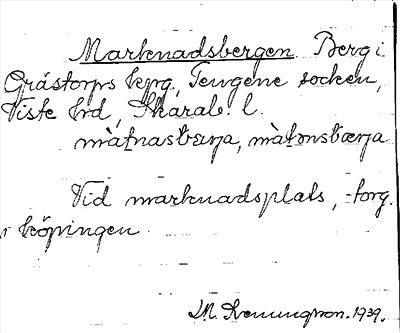 Marknadsbergen. Berg i
Grästorps kpg, Tengene socken,
Viste hd, Skarab. l.
màtnasbærja, màtonsbærja
Vid marknadsplats, -torg.
i köpingen.
1939.